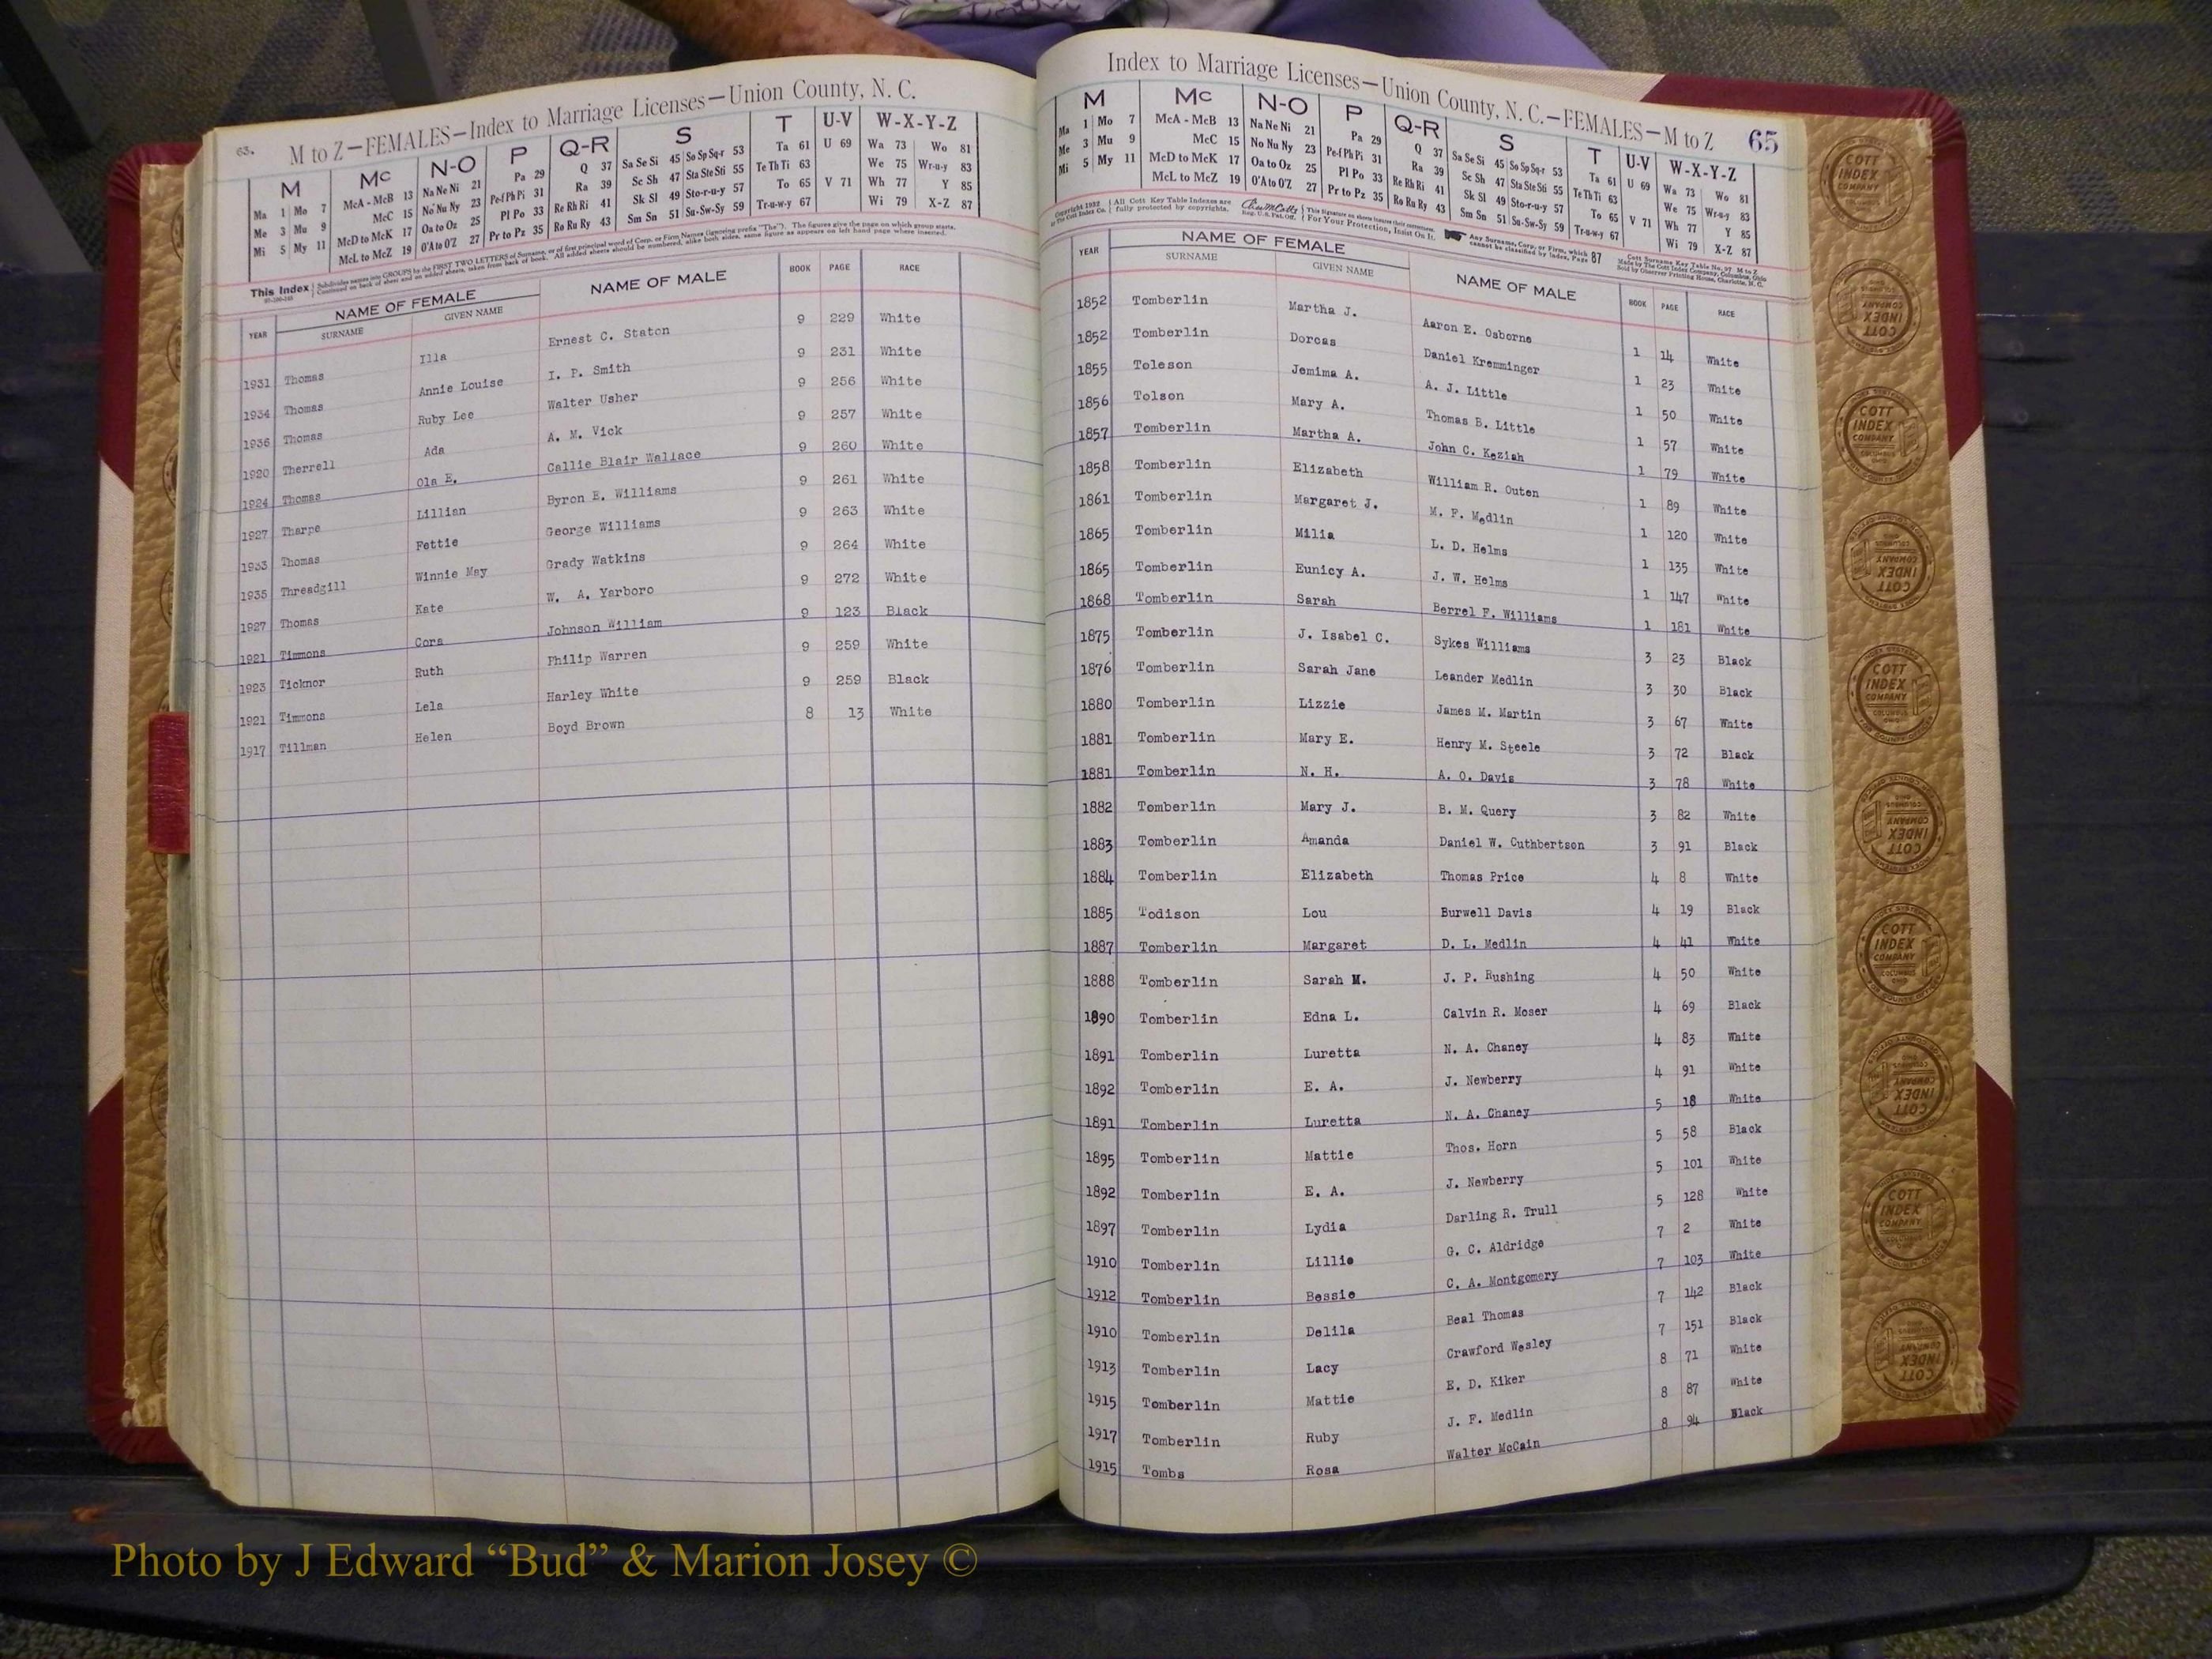 63.
M to Z—FEMALES—Index to Marriage Licenses—Union County, N. C.
M Mc N-O P Q-R S T U-V W-X-Y-Z
Ma 1 Mo 7 McA - McB 13 Na Ne Ni 21 Pa 29 Q 37 Sa Se Si 45 So Sp Sq-r 53 Ta 61 U 69 Wa 73 Wo 81
Me 3 Mu 9 McC 15 No Nu Ny 23 Pe-f Ph Pi 31 Ra 39 Sc Sh 47 Sta Ste Sti 55 Te Th Ti 63 We 75 Wr-u-y 83
Mi 5 My 11 McD to McK 17 Oa to Oz 25 Pl Po 33 Re Rh Ri 41 Sk Sl 49 Sto-r-u-y 57 To 65 V 71 Wh 77 Y 85
McL to McZ 19 O'A to O'Z 27 Pr to Pz 35 Ro Ru Ry 43 Sm Sn 51 Su-Sw-Sy 59 Tr-u-w-y 67 Wi 79 X-Z 87
This Index Subdivides names into GROUPS by the FIRST TWO LETTERS of Surname, or of first principal word of Corp. or Firm Names (ignoring prefix "The"). The figures give the page on which group starts.
Continued on back of sheet and on added sheets, taken from back of book. All added sheets should be numbered, alike both sides, same figure as appears on left hand page where inserted.
YEAR NAME OF FEMALE NAME OF MALE BOOK PAGE RACE
SURNAME GIVEN NAME
1931 Thomas Illa Ernest C. Staton 9 229 White
1934 Thomas Annie Louise I. P. Smith 9 231 White
1936 Thomas Ruby Lee Walter Usher 9 256 White
1920 Therrell Ada A. M. Vick 9 257 White
1924 Thomas Ola E. Callie Blair Wallace 9 260 White
1927 Tharpe Lillian Byron E. Williams 9 261 White
1933 Thomas Fettie George Williams 9 263 White
1935 Threadgill Winnie May Grady Watkins 9 264 White
1927 Thomas Kate W. A. Yarboro 9 272 White
1921 Timmons Cora Johnson William 9 123 Black
1923 Ticknor Ruth Philip Warren 9 259 White
1921 Timmons Lela Harley White 9 259 Black
1917 Tillman Helen Boyd Brown 8 13 White
Index to Marriage Licenses—Union County, N. C.—FEMALES—M to Z 65
M Mc N-O P Q-R S T U-V W-X-Y-Z
Ma 1 Mo 7 McA - McB 13 Na Ne Ni 21 Pa 29 Q 37 Sa Se Si 45 So Sp Sq-r 53 Ta 61 U 69 Wa 73 Wo 81
Me 3 Mu 9 McC 15 No Nu Ny 23 Pe-f Ph Pi 31 Ra 39 Sc Sh 47 Sta Ste Sti 55 Te Th Ti 63 We 75 Wr-u-y 83
Mi 5 My 11 McD to McK 17 Oa to Oz 25 Pl Po 33 Re Rh Ri 41 Sk Sl 49 Sto-r-u-y 57 To 65 V 71 Wh 77 Y 85
McL to McZ 19 O'A to O'Z 27 Pr to Pz 35 Ro Ru Ry 43 Sm Sn 51 Su-Sw-Sy 59 Tr-u-w-y 67 Wi 79 X-Z 87
All Cott Key Table Indexes are fully protected by copyrights.
For Your Protection, Insist On It.
Any Surname, Corp. or Firm, which cannot be classified by Index, Page 87
YEAR NAME OF FEMALE NAME OF MALE BOOK PAGE RACE
SURNAME GIVEN NAME
1852 Tomberlin Martha J. Aaron E. Osborne 1 14 White
1852 Tomberlin Dorcas Daniel Kremminger 1 23 White
1855 Toleson Jemima A. A. J. Little 1 50 White
1856 Tolson Mary A. Thomas B. Little 1 57 White
1857 Tomberlin Martha A. John C. Keziah 1 79 White
1858 Tomberlin Elizabeth William R. Outen 1 89 White
1861 Tomberlin Margaret J. M. F. Medlin 1 120 White
1865 Tomberlin Milia L. D. Helms 1 135 White
1865 Tomberlin Eunicy A. J. W. Helms 1 147 White
1868 Tomberlin Sarah Berrel F. Williams 1 181 White
1875 Tomberlin J. Isabel C. Sykes Williams 3 23 Black
1876 Tomberlin Sarah Jane Leander Medlin 3 30 Black
1880 Tomberlin Lizzie James M. Martin 3 67 White
1881 Tomberlin Mary E. Henry M. Steele 3 72 Black
1881 Tomberlin N. H. A. O. Davis 3 78 White
1882 Tomberlin Mary J. B. M. Query 3 82 White
1883 Tomberlin Amanda Daniel W. Cuthbertson 3 91 Black
1884 Tomberlin Elizabeth Thomas Price 4 8 White
1885 Todison Lou Burwell Davis 4 19 Black
1887 Tomberlin Margaret D. L. Medlin 4 41 White
1888 Tomberlin Sarah M. J. P. Rushing 4 50 White
1890 Tomberlin Edna L. Calvin R. Moser 4 69 Black
1891 Tomberlin Luretta N. A. Chaney 4 83 White
1892 Tomberlin E. A. J. Newberry 4 91 White
1891 Tomberlin Luretta N. A. Chaney 5 18 White
1895 Tomberlin Mattie Thos. Horn 5 58 Black
1892 Tomberlin E. A. J. Newberry 5 101 White
1897 Tomberlin Lydia Darling R. Trull 5 128 White
1910 Tomberlin Lillie G. C. Aldridge 7 2 White
1912 Tomberlin Bessie C. A. Montgomery 7 103 White
1910 Tomberlin Delila Beal Thomas 7 142 Black
1913 Tomberlin Lacy Crawford Wesley 7 151 Black
1915 Tomberlin Mattie E. D. Kiker 8 71 White
1917 Tomberlin Ruby J. F. Medlin 8 87 White
1915 Tombs Rosa Walter McCain 8 94 Black
COTT INDEX COMPANY
Photo by J Edward “Bud” & Marion Josey ©